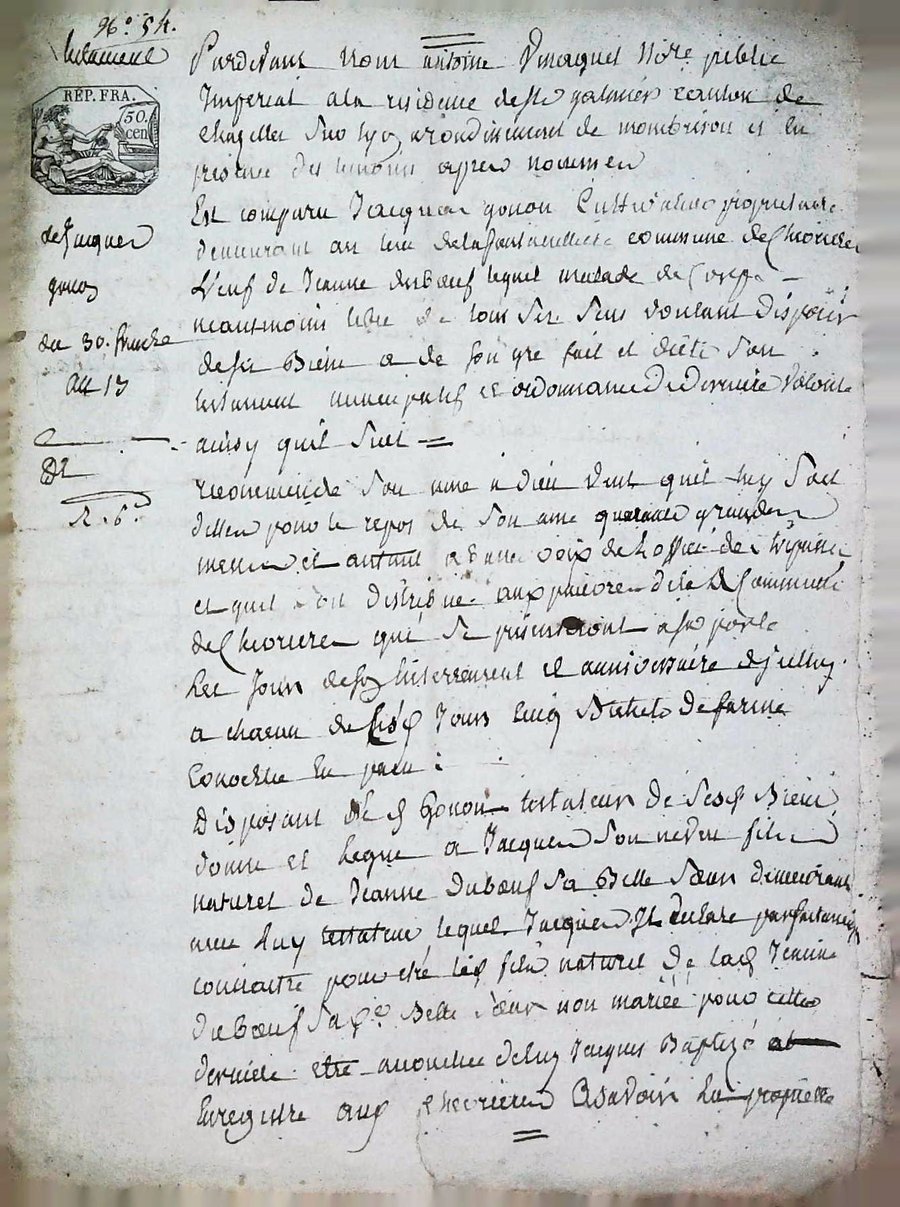 N.º 54.
testament
RÉP. FRA.
50.
cen
de Jacques
gonon
du 30. frimaire
an 13
Pardevant nous antoine notre public
Imperial a la residence de St galmier canton de
chazelles sur lyon arondissement de montbrison et en
presence des temoins apres nommes
Est comparu Jacques gonon Cultivateur proprietaire
demeurant au lieu de commune de Chevrieres
Veuf de Jeanne duboeuf lequel malade de Corps
neantmoins libre de tous ses sens voulant disposer
de ses Biens a de son gré fait et dicté son
testament nuncupatif et ordonnance de derniere volonté
ainsy quil suit =
recommende son ame a dieu veut quil soit
dittes pour le repos de son ame quarante grandes
messes et autant a basse voix de
et quil soit distribué aux pauvres de la de Commune
de Chevrieres qui se presenteront a sa porte
les Jour de son enterrement et anniversaire
a chacun de Jours Cinq Bichets de farine
Convertie en pain :
Disposant gonon testateur de Biens
donne et legue a Jacques son neveu fils
naturel de Jeanne Duboeuf sa Belle soeur demeurant
avec luy testateur lequel Jacques Il declare parfaitement
connaitre pour etre fils naturel de Jeanne
duboeuf sa Belle soeur non mariée pour cette
derniere etre accouchée de luy Jacques Baptizé
Enregistré aux chevrieres Asavoir La propriete